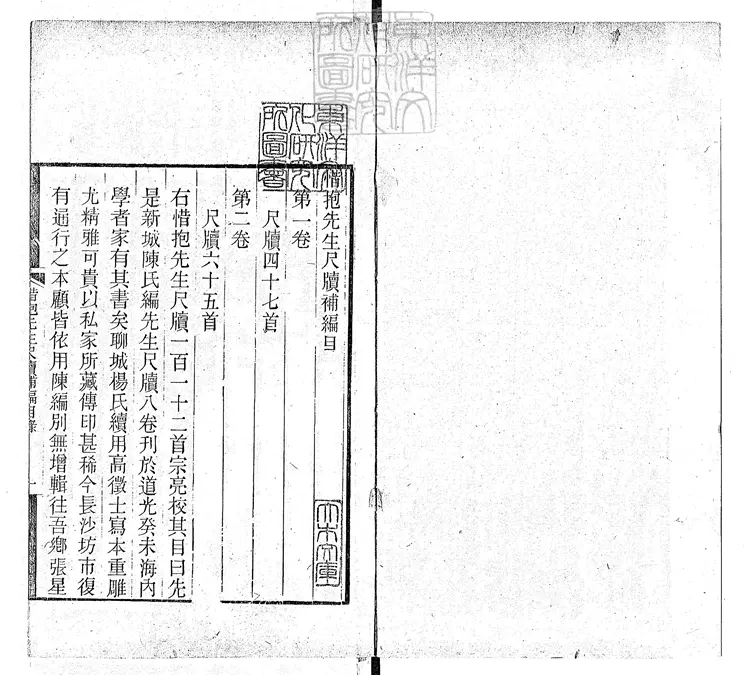 惜抱先生尺牘補編目
第一卷
尺牘四十七首
第二卷
尺牘六十五首
右惜抱先生尺牘一百一十二首宗亮校其目曰先
是新城陳氏編先生尺牘八卷刊於道光癸未海內
學者家有其書矣聊城楊氏續用高徵士寫本重雕
尤精雅可貴以私家所藏傳印甚稀今長沙坊市復
有通行之本顧皆依用陳編別無增輯往吾鄉張星
惜抱先生尺牘補編目錄
一
東洋文化研究所圖書
東洋文化研究所圖書
大木文庫